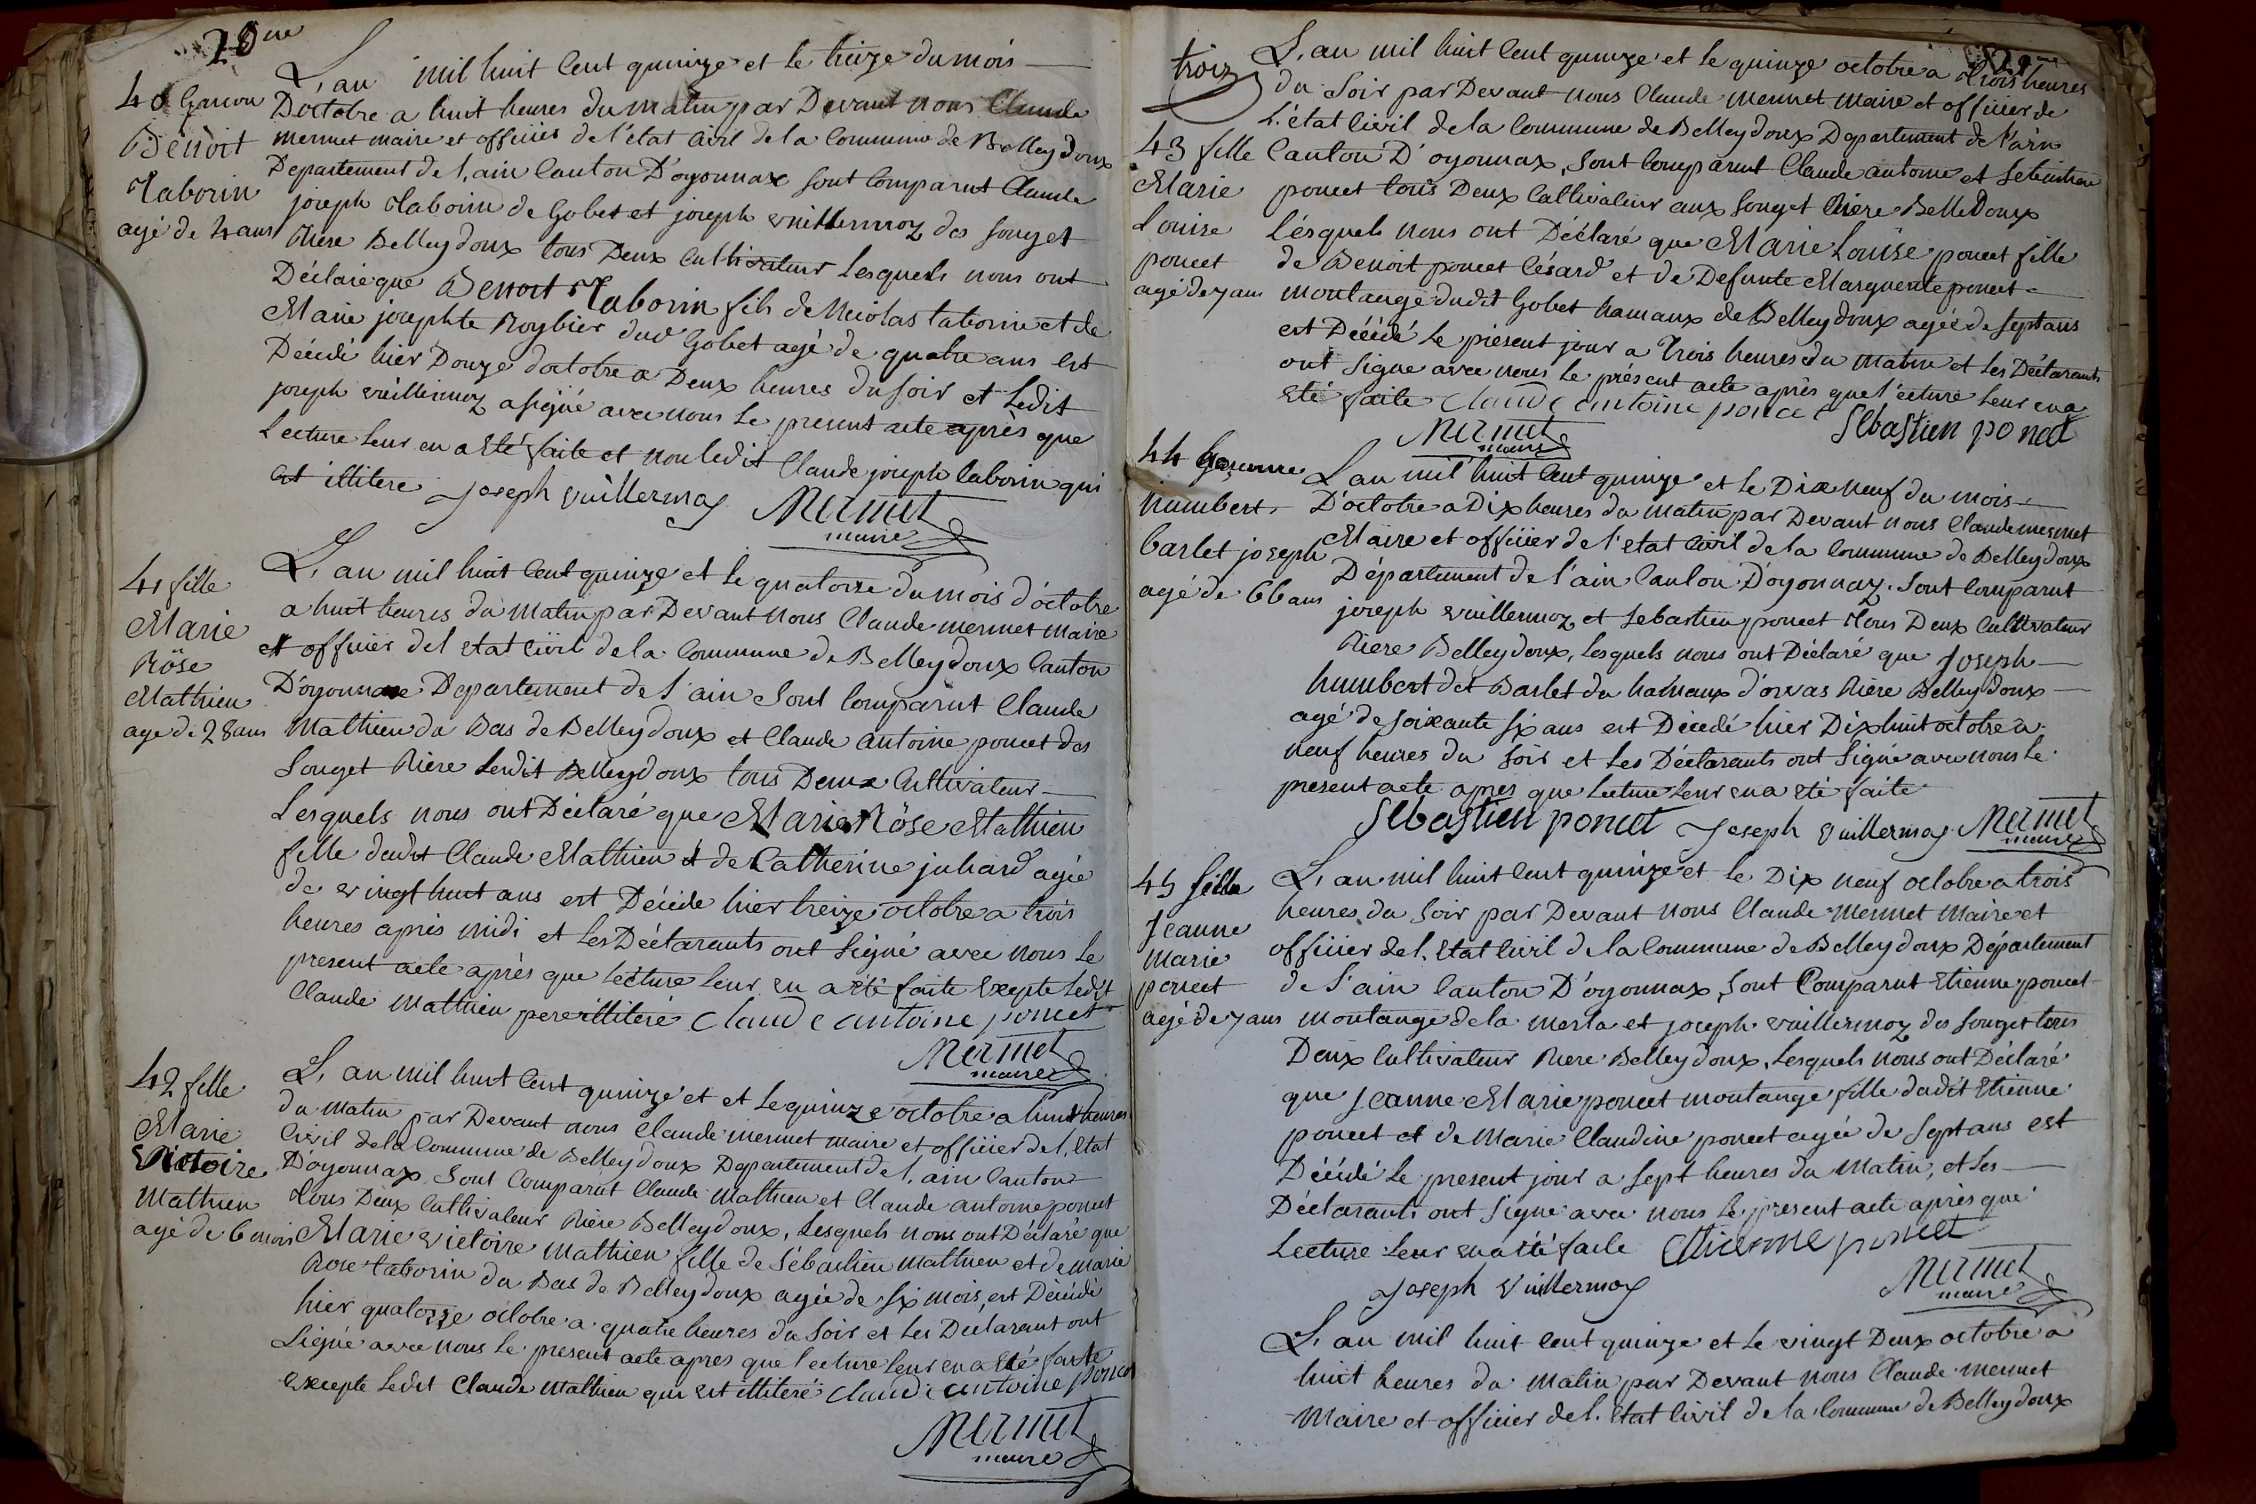 40 Garcon
Benoit
Taborin
agé de 4 ans
L'an mil huit Cent quinze et le treize du mois
D'octobre a huit heures du matin par Devant nous Claude
mermet maire et officier de l'état Civil de la Commune de Belleydoux
Departement de l'ain Canton D'oyonnax sont Comparut Claude
joseph Taborin de Gobet et joseph vuillermoz des souget
Riere Belleydoux tous Deux Cultivateur Lesquels nous ont
Déclaré que Benoit Taborin fils de Nicolas taborin et de
Marie josephte Roybier dud Gobet agé de quatre ans est
Décédé hier Douze doctobre a Deux heures du soir et Ledit
joseph vuillermoz a signé avec nous le present acte après que
Lecture leur en a eté faite et non ledit Claude joseph taborin qui
est illitere Joseph vuillermoz
Mermet
maire
41 fille
Marie
Röse
Mathieu
age de 28 ans
L'an mil huit Cent quinze et le quatorze du mois d'octobre
a huit heures du matin par Devant nous Claude mermet maire
et officier del etat Civil de la Commune de Belleydoux Canton
D'oyonnax Departement de l'ain sont Comparut Claude
Mathieu du Bas de Belleydoux et Claude antoine poncet des
souget Riere Ledit Belleydoux tous Deux Cultivateur
Lesquels nous ont Déclaré que Marie Röse Mathieu
fille dudit Claude Mathieu et de Catherine juhard agée
de vingt huit ans est Décédé hier treize octobre a trois
heures après midi et Les Déclarants ont signé avec nous le
present acte après que lecture leur en a eté faite Excepte Ledit
Claude Mathieu pere illiteré Claude antoine poncet
Mermet
maire
42 fille
Marie
Victoire
Mathieu
agé de 6 mois
L'an mil huit Cent quinze et et le quinze octobre a huit heures
du matin par Devant nous Claude mermet maire et officier del. Etat
Civil de la Commune de Belleydoux Departement de l'ain Canton
D'oyonnax sont Comparut Claude Mathieu et Claude antoine poncet
tous Deux Cultivateur Riere Belleydoux, Lesquels nous ont Déclaré que
Marie victoire Mathieu fille de Sébastien Mathieu et de marie
Rose taborin du Bas de Belleydoux agée de six mois, est Décédé
hier quatorze octobre a quatre heures du soir et Les Déclarant ont
Signé avec nous le present acte apres que lecture leur en a eté faite
excepte Ledit Claude Mathieu qui est illiteré Claude antoine poncet
Mermet
maire
trois
43 fille
Marie
Louise
poncet
agé de 7 ans
L'an mil huit Cent quinze et le quinze octobre a trois heures
du Soir par Devant nous Claude mermet maire et officier de
L'état Civil de la Commune de Belleydoux Departement de l'ain
Canton D'oyonnax, sont Comparut Claude antoine et sebastien
poncet tous Deux Cultivateur aux souget Riere Belledoux
Lésquels nous ont Déclaré que Marie Louise poncet fille
de Benoit poncet Césard et de Defunte Marguerite poncet
montange dudit Gobet hamaux de Belleydoux agée de sept ans
est Décédé le présent jour a trois heures du matin et les Déclarants
ont signe avec nous le présent acte après que lécture leur en a
eté faite Claude antoine poncet
Sébastien poncet
Mermet
maire
44 Garconne
humbert
barlet joseph
agé de 66 ans
L'an mil huit Cent quinze et le Dix neuf du mois
D'octobre a Dix heures du matin par Devant nous Claude mermet
Maire et officier de l'etat Civil de la Commune de Belleydoux
Département de l'ain Canton D'oyonnax. sont Comparut
joseph vuillermoz et sebastien poncet tous Deux Cultivateur
Riere Belleydoux, Lesquels nous ont Déclaré que Joseph
humbert dit Barlet du hamaux d'orvas Riere Belleydoux
agé de soixante six ans est Décédé hier Dix huit octobre a
neuf heures du soir et Les Déclarants ont signé avec nous le
present acte apres que Lecture leur en a eté faite
Sébastien poncet Joseph vuillermoz Mermet
maire
45 fille
Jeanne
marie
poncet
agé de 7 ans
L'an mil huit Cent quinze et le Dix neuf octobre a trois
heures du soir par Devant nous Claude Mermet Maire et
officier del. Etat Civil de la Commune de Belleydoux Département
de l'ain Canton D'oyonnax, sont Comparut Etienne poncet
montange de la merla et joseph vuillermoz des souget tous
Deux Cultivateur Riere Belleydoux, Lesquels nous ont Déclaré
que Jeanne Marie poncet montange fille dudit Etienne
poncet et de Marie Claudine poncet agée de sept ans est
Décédé le present jour a sept heures du Matin, et les
Déclarants ont signé avec nous le present acte après que
Lecture leur en a eté faite Etienne poncet
Joseph vuillermoz
Mermet
maire
L'an mil huit Cent quinze et le vingt Deux octobre a
huit heures du matin par Devant nous Claude mermet
Maire et officier del. Etat Civil de la Commune de Belleydoux